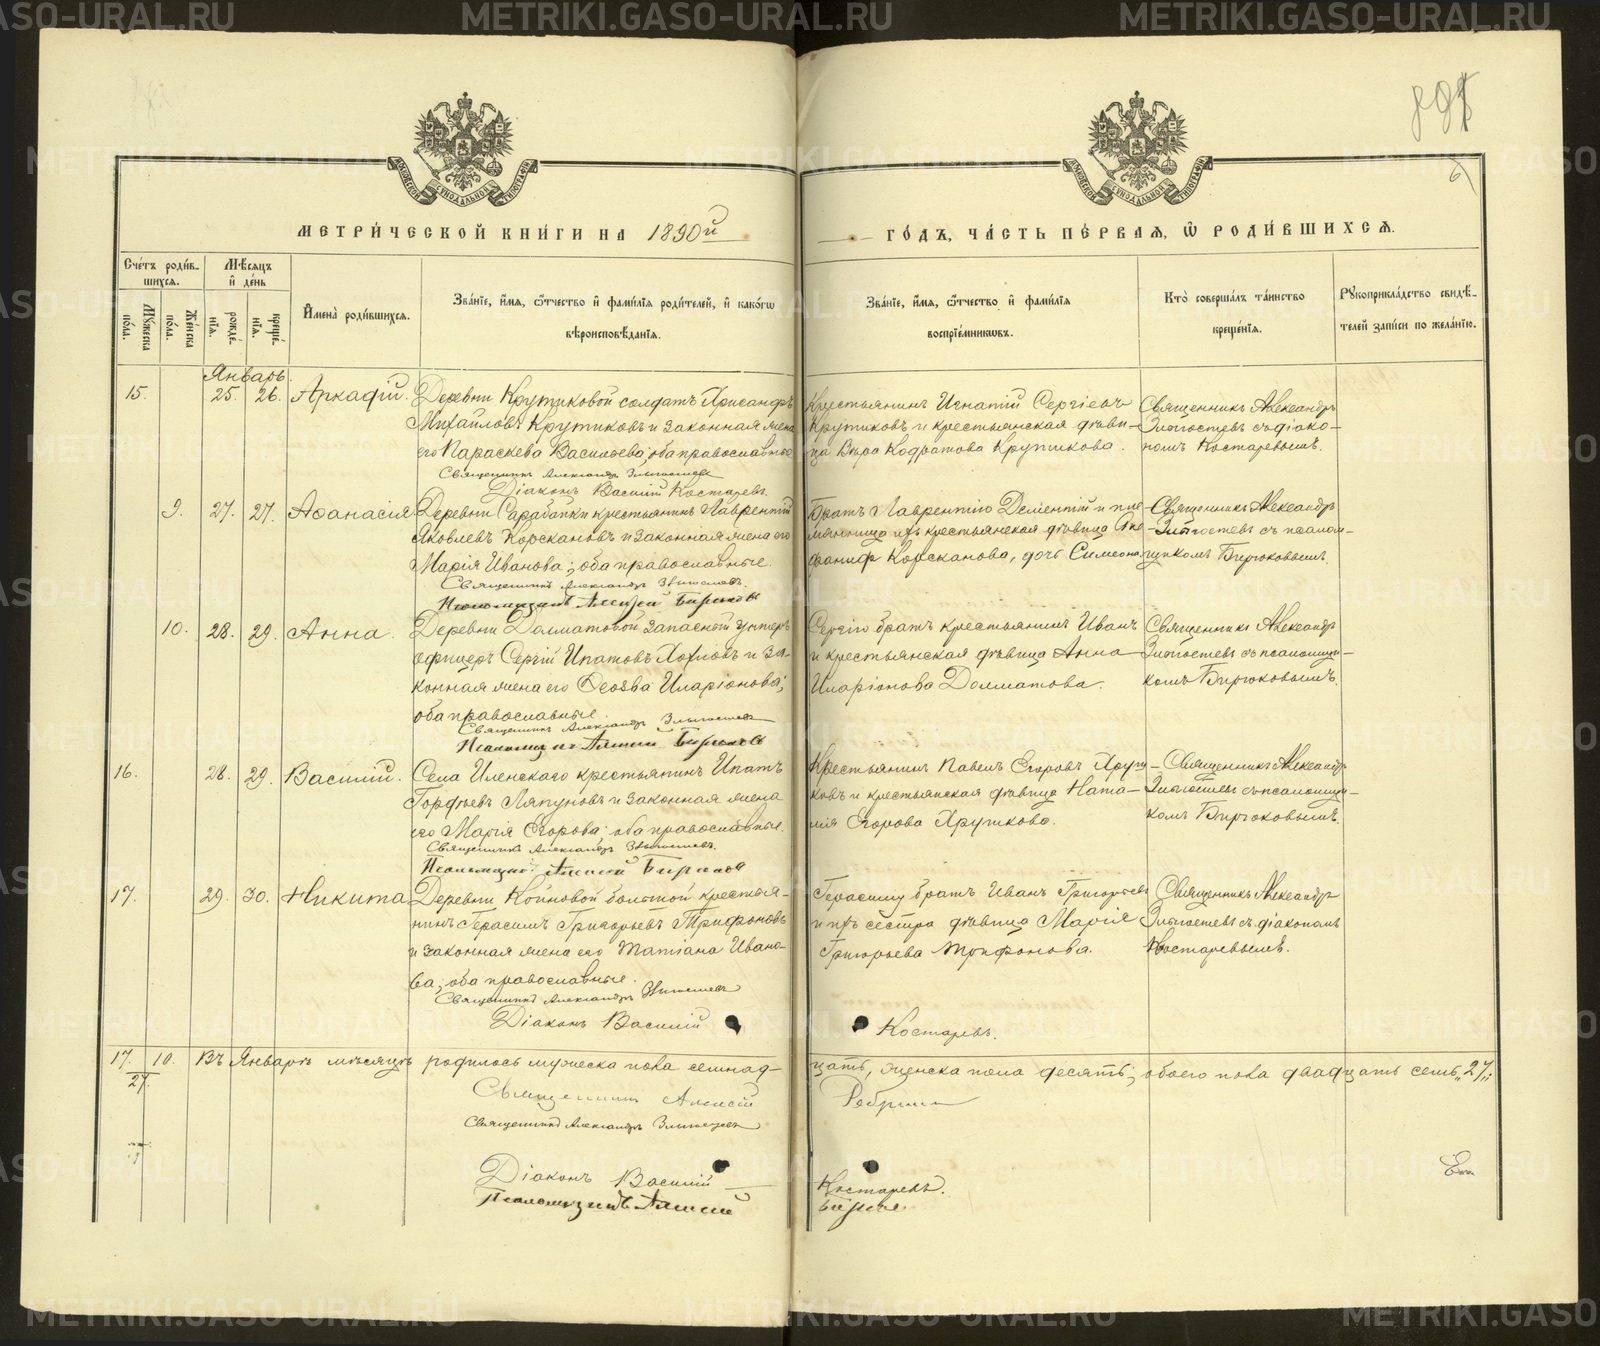 METRIKI.GASO-URAL.RU
МЕТРИ́ЧЕСКОЙ КНИ́ГИ НА 1890й
ГО́ДЪ, ЧА́СТЬ ПЕ́РВАЯ, Ѽ РОДИ́ВШИХСЯ.
Сче́тъ роди́в-
шихся.
Мѣ́сяцъ
и҆ де́нь
Му́жеска по́ла.
Же́нска по́ла.
рожде́-
нїя.
креще́-
нїя.
И҆мена̀ роди́вшихся.
Зва́нїе, и҆́мя, ѻ҆́тчество и҆ фамі́лїя роди́телей, и҆ како́гѡ
вѣроисповѣ́данїя.
Зва́нїе, и҆́мя, ѻ҆́тчество и҆ фамі́лїя
воспрїе́мникѡвъ.
Кто̀ соверша́лъ та́инство
креще́нїя.
Рꙋкоприкла́дство свидѣ́-
телей за́писи по жела́нїю.
Январь.
15. 25. 26. Аркадій. Деревни Крутиковой солдатъ Хрисанфъ
Михайловъ Крутиковъ и законная жена
его Параскева Васильева; оба православные
Священникъ Александръ
Діаконъ Василій Костаревъ.
Крестьянинъ Игнатій Сергіевъ
Крутиковъ и крестьянская дѣви-
ца Вѣра Кодратова Крутикова.
Священникъ Александръ
съ діако-
номъ Костаревымъ.
9. 27. 27. Афанасія. Деревни крестьянинъ Лаврентій
Яковлевъ Корскановъ и законная жена его
Марія Иванова; оба православные.
Священникъ Александръ
Псаломщикъ Алексѣй Бирюковъ
Братъ Лаврентію Дементій и пле-
мянница ихъ крестьянская дѣвица Сте-
фанида Корсканова, дочь Симеона.
Священникъ Александръ
съ псалом-
щикомъ Бирюковымъ.
10. 28. 29. Анна. Деревни Долматовой запасный унтеръ
офицеръ Сергій Ипатовъ и за-
конная жена его Иларіонова;
оба православные.
Священникъ Александръ
Псаломщикъ Алексѣй Бирюковъ
Сергію братъ крестьянинъ Иванъ
и крестьянская дѣвица Анна
Иларіонова Долматова.
Священникъ Александръ
съ псаломщи-
комъ Бирюковымъ.
16. 28. 29. Василій. Села Иленскаго крестьянинъ Ипатъ
Гордѣевъ Ляпуновъ и законная жена
его Марія Егорова; оба православные.
Священникъ Александръ
Псаломщикъ Алексѣй Бирюковъ
Крестьянинъ Павелъ Егоровъ Хруш-
ковъ и крестьянская дѣвица Ната-
лія Егорова Хрушкова.
Священникъ Александръ
съ псаломщи-
комъ Бирюковымъ.
17. 29. 30. Никита. Деревни Койновой большой крестья-
нинъ Герасимъ Григорьевъ Трифоновъ
и законная жена его Татіана Ивано-
ва; оба православные.
Священникъ Александръ
Діаконъ Василій Костаревъ.
Герасиму братъ Иванъ Григорьевъ
и ихъ сестра дѣвица Марія
Григорьева Трифонова.
Священникъ Александръ
съ діакономъ
Костаревымъ.
17. 10. Въ Январѣ мѣсяцѣ родилось мужеска пола семнад-
цать, женска пола десять; обоего пола двадцать семь „27„
27.
Священникъ Алексій
Священникъ Александръ
Діаконъ Василій Костаревъ.
Псаломщикъ Алексѣй